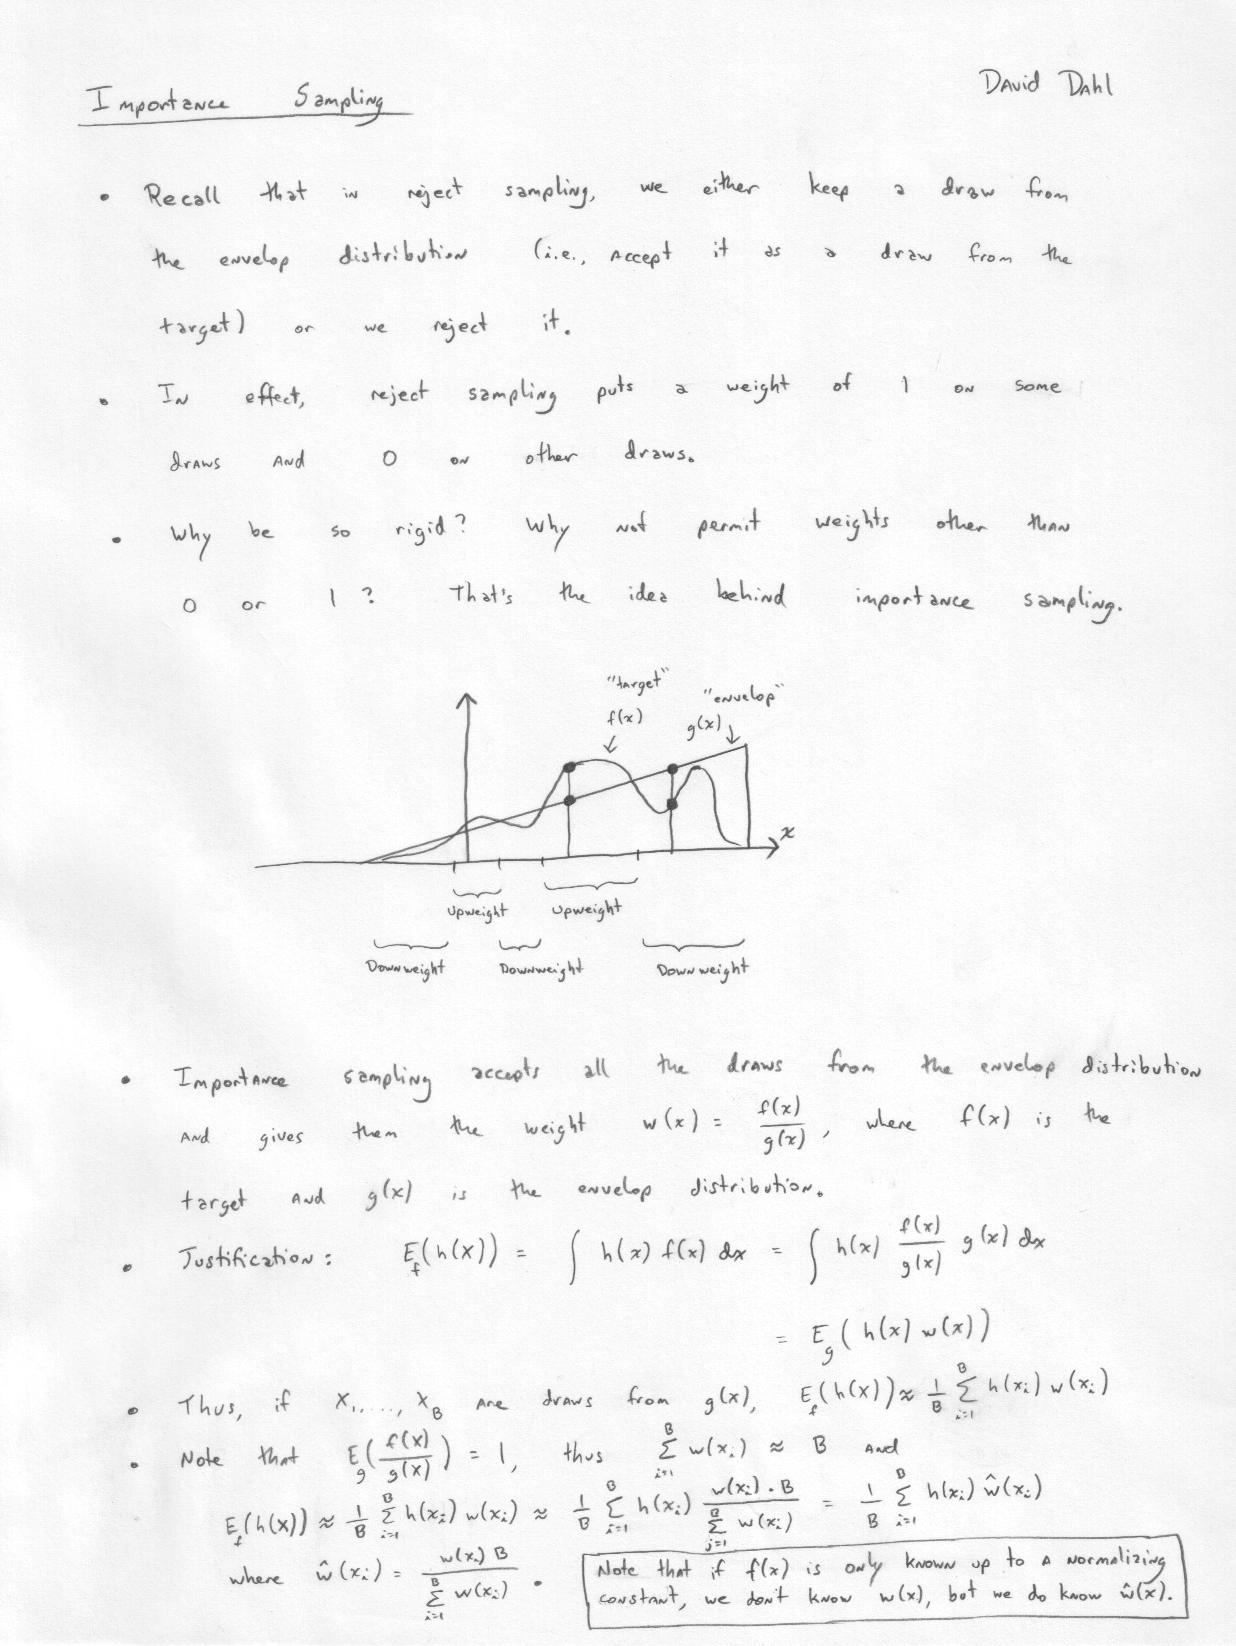 Importance Sampling
David Dahl
• Recall that in reject sampling, we either keep a draw from
the envelop distribution (i.e., accept it as a draw from the
target) or we reject it.
• In effect, reject sampling puts a weight of 1 on some
draws and 0 on other draws.
• Why be so rigid? Why not permit weights other than
0 or 1? That's the idea behind importance sampling.
"target"
f(x)
"envelop"
g(x)
x
Upweight Upweight
Downweight Downweight Downweight
• Importance sampling accepts all the draws from the envelop distribution
and gives them the weight w(x) = f(x)/g(x), where f(x) is the
target and g(x) is the envelop distribution.
• Justification: E_f(h(x)) = ∫ h(x) f(x) dx = ∫ h(x) f(x)/g(x) g(x) dx
= E_g(h(x) w(x))
• Thus, if x_1, ..., x_B are draws from g(x), E_f(h(x)) ≈ 1/B ∑_{i=1}^B h(x_i) w(x_i)
• Note that E_g(f(x)/g(x)) = 1, thus ∑_{i=1}^B w(x_i) ≈ B and
E_f(h(x)) ≈ 1/B ∑_{i=1}^B h(x_i) w(x_i) ≈ 1/B ∑_{i=1}^B h(x_i) w(x_i)·B / ∑_{j=1}^B w(x_i) = 1/B ∑_{i=1}^B h(x_i) ŵ(x_i)
where ŵ(x_i) = w(x_i) B / ∑_{i=1}^B w(x_i) .
Note that if f(x) is only known up to a normalizing
constant, we don't know w(x), but we do know ŵ(x).